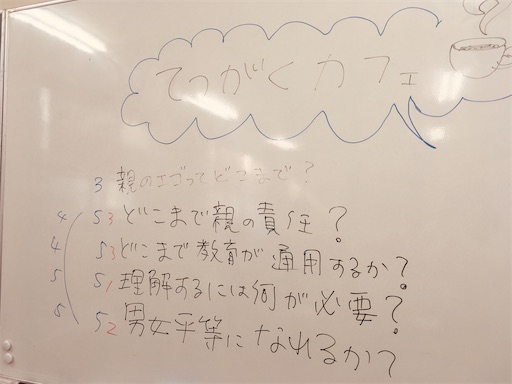 てつがくカフェ
3 親のエゴってどこまで?
4 53 どこまで親の責任?
4 53 どこまで教育が通用するか?
5 51 理解するには何が必要?
5 52 男女平等になれるか?